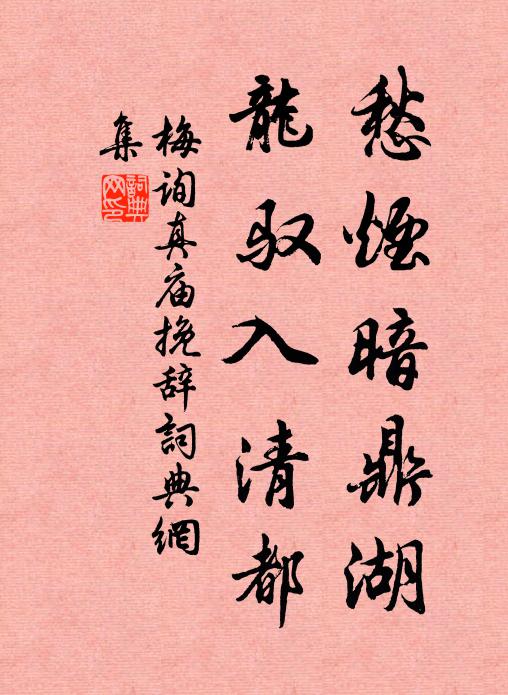 愁煙暗鼎湖
龍馭入清都
梅询真庙挽辞詞典網
集
詞典网印